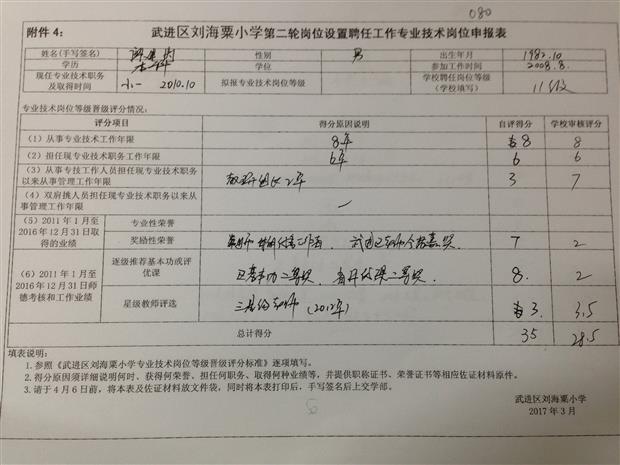 080
附件4：
武进区刘海粟小学第二轮岗位设置聘任工作专业技术岗位申报表
姓名(手写签名) 性别 男 出生年月 1982.10
学历 本科 学位 参加工作时间 2008.8.
现任专业技术职务及取得时间 小一 2010.10 拟报专业技术岗位等级 学校聘任岗位等级(学校填写) 11级
专业技术岗位等级晋级评分情况：
评分项目 得分原因说明 自评得分 学校审核评分
（1）从事专业技术工作年限 8年 8 8
（2）担任现专业技术职务工作年限 6年 6 6
（3）从事专技工作人员担任现专业技术职务以来从事管理工作年限 教研组长2年 3 7
（4）双肩挑人员担任现专业技术职务以来从事管理工作年限 —
（5）2011年1月至2016年12月31日取得的业绩 专业性荣誉
奖励性荣誉 7 2
（6）2011年1月至2016年12月31日师德考核和工作业绩 逐级推荐基本功或评优课 8. 2
星级教师评选 三星级教师 (2012年) 3. 3.5
总计得分 35 28.5
填表说明：
1.参照《武进区刘海粟小学专业技术岗位等级晋级评分标准》逐项填写。
2.得分原因须详细说明何时、获得何荣誉、担任何职务、取得何种业绩等，并提供职称证书、荣誉证书等相应佐证材料原件。
3.请于4月6日前，将本表及佐证材料放文件袋，同时将本表打印后，手写签名后上交学部。
武进区刘海粟小学
2017年3月